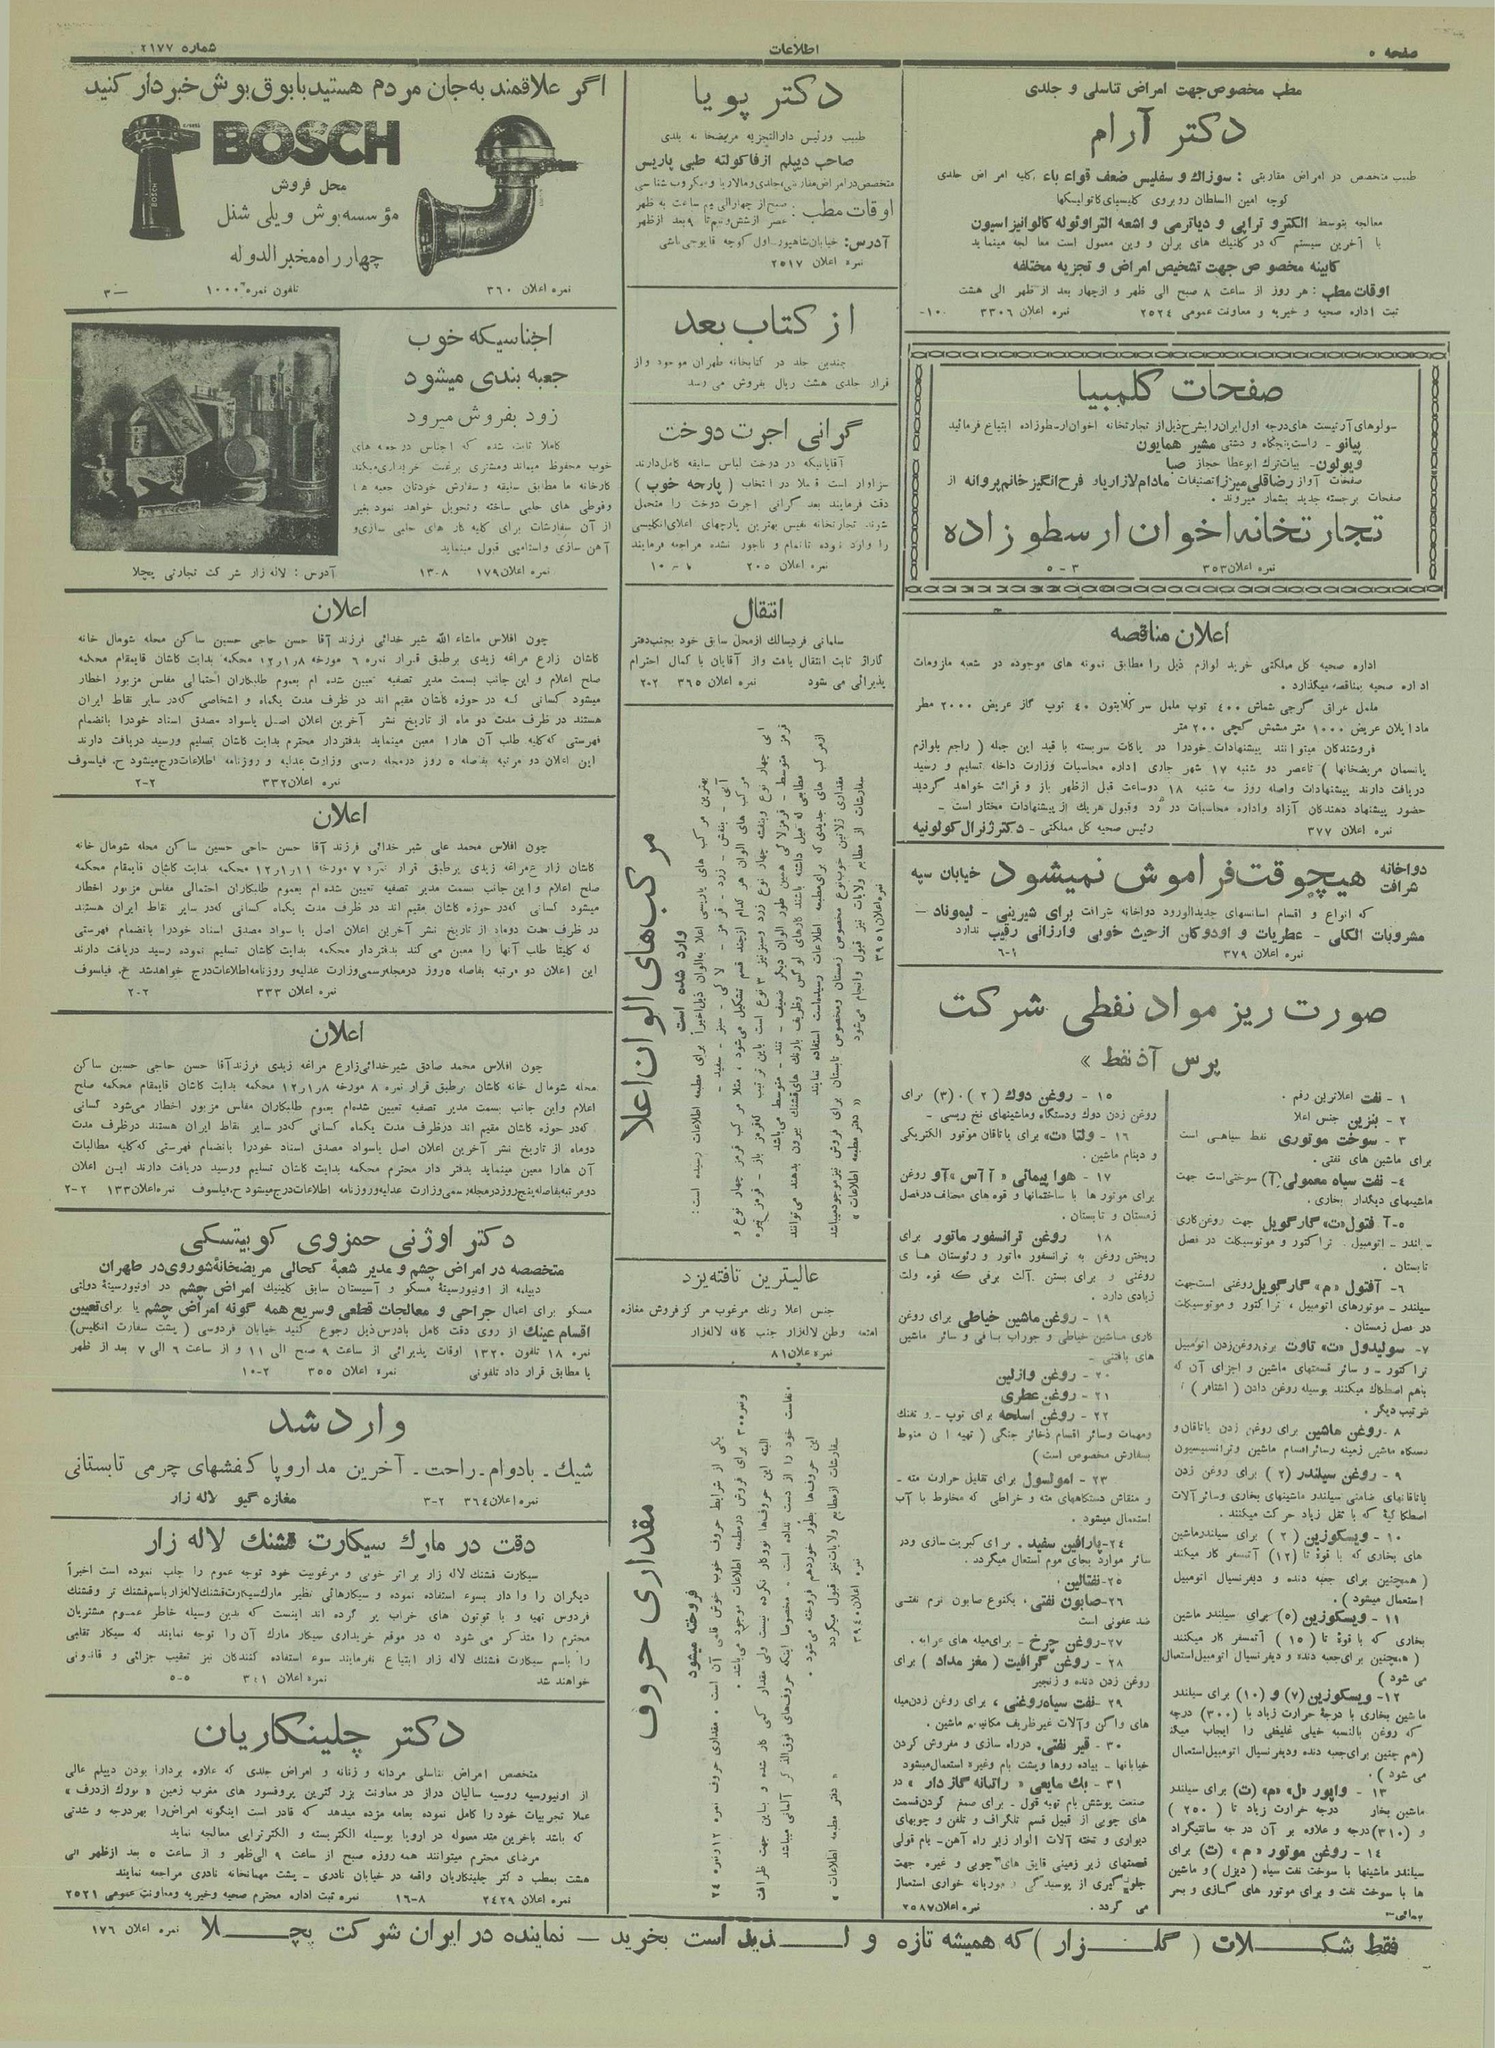 صفحه ۵
اطلاعات
شماره ۲۱۷۷
مطب مخصوص جهت امراض تناسلی و جلدی
دکتر آرام
طبیب متخصص در امراض مقاربتی : سوزاك و سفلیس ضعف قواء باء، کلیه امراض جلدی
کوچه امین السلطان روبروی کلیسیای کاتولیکها
معالجه بتوسط الکترو تراپی و دیاترمی و اشعه التراوئوله کالوانیزاسیون
با آخرین سیستم که در کلنیك های برلن و وین معمول است معالجه مینماید
کابینه مخصوص جهت تشخیص امراض و تجزیه مختلفه
اوقات مطب : هر روز از ساعت ۸ صبح الی ظهر و ازچهار بعد از ظهر الی هشت
ثبت اداره صحیه و خیریه و معاونت عمومی ۲۵۲۴ نمره اعلان ۳۳۰۶ ۱۰-
صفحات کلمبیا
سولوهای آرتیست های درجه اول ایران را بشرح ذیل از تجارتخانه اخوان ارسطوزاده ابتیاع فرمائید
پیانو - راست پنجگاه و دشتی مشیر همایون
ویولون- بیات ترك ابوعطا حجاز صبا
صفحات آواز رضاقلی میرزا تصنیفات مادام لازاریاد فرح انگیز خانم پروانه از
صفحات برجسته جدید بشمار میروند .
تجارتخانه اخوان ارسطوزاده
نمره اعلان ۳۵۳ ۳-۵
اعلان مناقصه
اداره صحیه کل مملکتی خرید لوازم ذیل را مطابق نمونه های موجوده در شعبه ملزومات
اداره صحیه بمناقصه میگذارد .
ململ عراقی گرجی شماش ۴۰۰ توپ ململ سرکلابتون ۴۰ توپ گاز عریض ۲۰۰۰ متر
مادایلان عریض ۱۰۰۰ متر مشمش گچی ۲۰۰ متر
فروشندکان میتوانند پیشنهادات خودرا در پاکات سربسته با قید این جمله ( راجع بلوازم
پانسمان مریضخانها ) تاعصر دو شنبه ۱۷ شهر جاری اداره محاسبات وزارت داخله تسلیم و رسید
دریافت دارند پیشنهادات واصله روز سه شنبه ۱۸ دوساعت قبل ازظهر باز و قرائت خواهد گردید
حضور پیشنهاد دهندگان آزاد واداره محاسبات در رد وقبول هریك از پیشنهادات مختار است -
نمره اعلان ۳۷۷ رئیس صحیه کل مملکتی - دکتر ژنرال کولونیه
دواخانه شرافت هیچوقت فراموش نمیشود خیابان سپه
که انواع و اقسام اسانسهای جدیدالورود دواخانه شرافت برای شیرینی - لیموناد -
مشروبات الکلی - عطریات و اودوکلن ازحیث خوبی وارزانی رقیب ندارد
نمره اعلان ۳۷۹
صورت ریز مواد نفطی شرکت
پرس آذنفط »
۱ - نفت اعلاترین رقم .
۲ - بنزین جنس اعلا
۳ - سوخت موتوری نفط سیاهی است
برای ماشین های نفتی .
۴- نفت سیاه معمولی (آ) سوختی است جهت
ماشینهای دیگدار بخاری .
۵-آفتول «ت» گارگویل جهت روغن کاری
سیلندر - اتومبیل . تراکتور و موتوسیکلت در فصل
تابستان .
۶- آفتول «م» گارگویل روغنی است جهت
سیلندر - موتورهای اتومبیل ، تراکتور و موتوسیکلت
در فصل زمستان .
۷- سولیدول «ت» تاوت برای روغن زدن اتومبیل
تراکتور - و سائر قسمتهای ماشین و اجزای آن که
باهم اصطکاك میکنند بوسیله روغن دادن ( اشتافر )
ترتیب دیگر .
۸ -روغن ماشین برای روغن زدن یاتاقان و
دستگاه ماشین زمینه وسائر اقسام ماشین وترانسمیسیون
۹ - روغن سیلندر (۲) برای روغن زدن
یاتاقانهای ضامنی سیلندر ماشینهای بخاری وسائر آلات
اصطکاکیه که با ثقل زیاد حرکت میکنند .
۱۰ - ویسکوزین ( ۲ ) برای سیلندر ماشین
های بخاری که با قوه تا (۱۲) آتمسفر کار میکند
( همچنین برای جعبه دنده و دیفرنسیال اتومبیل
استعمال میشود ) .
۱۱ - ویسکوزین (۵) برای سیلندر ماشین
بخاری که با قوه تا ( ۱۵ ) آتمسفر کار میکنند
( همچنین برای جعبه دنده و دیفرنسیال اتومبیل استعمال
می شود )
۱۲- ویسکوزین (۷) و (۱۰) برای سیلندر
ماشین بخاری با درجه حرارت زیاد با (۳۰۰) درجه
که روغن بالنسبه خیلی غلیظی را ایجاب میکند
(هم چنین برای جعبه دنده ودیفرنسیال اتومبیل استعمال
می شود ) .
۱۳ - واپور «ل» «م» (ت) برای سیلندر
ماشین بخار درجه حرارت زیاد تا ( ۲۵۰ )
و (۳۱۰) درجه و علاوه بر آن درجه سانتیگراد
۱۴ - روغن موتور «م » (ت) برای
سیلندر ماشینها با سوخت نفت سیاه (دیزل) و ماشین
ها با سوخت نفت و برای موتور های گازی و بحر
پیمائی-
۱۵ - روغن دوك ( ۲ ) ۰ (۳) برای
روغن زدن دوك ودستگاه وماشینهای نخ ریسی -
۱۶ - ولتا «ت» برای یاتاقان موتور الکتریکی
و دینام ماشین .
۱۷ - هوا پیمائی « آآس » آو روغن
برای موتور ها با ساختمانها و قوه های مختلف درفصل
زمستان و تابستان .
۱۸ روغن ترانسفور ماتور برای
ریختن روغن به ترانسفور ماتور و رئوستان های
روغنی و برای بستن آلت برقی که قوه ولت
زیادی دارد .
۱۹ - روغن ماشین خیاطی برای روغن
کاری ماشین خیاطی و جوراب بافی و سائر ماشین
های بافتنی -
۲۰ - روغن وازلین
۲۱ - روغن عطری
۲۲ - روغن اسلحه برای توپ - و تفنك
ومهمات وسائر اقسام ذخائر جنگی ( تهیه آن منوط
بسفارش مخصوص است )
۲۳ - امولسول برای تقلیل حرارت مته -
و منقاش دستگاههای مته و خراطی که مخلوط با آب
استعمال میشود .
۲۴-پارافین سفید . برای کبریت سازی ودر
سائر موارد بجای موم استعمال میگردد .
۲۵-نفتالین
۲۶-صابون نفتی ، یکنوع صابون نرم نفتی
ضد عفونی است
۲۷-روغن چرخ - برای میله های عرابه .
۲۸ - روغن گرافیت ( مغز مداد ) برای
روغن زدن دنده و زنجیر
۲۹ -نفت سیاه روغنی ، برای روغن زدن میله
های واگن وآلات غیرظریف مکانیه ماشین .
۳۰ - قیر نفتی. درراه سازی و مفروش کردن
خیابانها - پیاده روها وپشت بام وغیره استعمال میشود
۳۱ - بك مایعی « راتیانه گازدار » در
صنعت پوشش بام تهیه قول - برای صمغ کردن قسمت
های چوبی از قبیل قسم تلگراف و تلفن و چوبهای
دیواری و تخته آلات الوار زیر راه آهن- بام قولی
قسمتهای زیر زمینی قایق های چوبی و غیره جهت
جلوگیری از پوسیدگی و موریانه خواری استعمال
می گردد . نمره اعلان ۲۵۸۷
دکتر پویا
طبیب ورئیس دارالتجزیه مریضخانه بلدی
صاحب دیپلم ازفاکولته طبی پاریس
متخصص درامراض مقاربتی، جلدی ومالاریا ومیکروب شناسی
اوقات مطب : صبح از چهار الی نیم ساعت به ظهر
عصر ازشش ونیم تا ۹ بعد ازظهر
آدرس: خیابان شاهپور - اول کوچه قاپوچی باشی
نمره اعلان ۲۵۱۷
از کتاب بعد
چندین جلد در کتابخانه طهران موجود واز
قرار جلدی هشت ریال بفروش می رسد
گرانی اجرت دوخت
آقایانیکه در دوخت لباس سابقه کامل دارند
سزاوار است قبلا در انتخاب ( پارچه خوب )
دقت فرمایند بعد گرانی اجرت دوخت را متحمل
شوند. تجارتخانه نفیس بهترین پارچهای اعلای انگلیسی
را وارد نموده تا تمام و ناجور نشده مراجعه فرمایند
نمره اعلان ۲۰۵
انتقال
سلمانی فردسالك ازمحل سابق خود بجنب دفتر
گاراژ ثابت انتقال یافت واز آقایان با کمال احترام
پذیرائی می شود نمره اعلان ۳۶۵ ۲-۲
مرکب های الوان اعلا
وارد شده است
بهترین مرکب های پاریسی اعلا به الوان ذیل اخیراً برای مطبعه اطلاعات رسیده است :
آبی - بنفش - زرد - قرمز - لاکی - سبز - سفید -
مرکب های الوان هر کدام ازچند قسم تشکیل می شود ، مثلا مرکب قرمز چهار نوع و
آبی چهار نوع وبنفشه چهار نوع زرد وسبز نیز ۳ نوع است باین ترتیب که قرمز باز - قرمز تیره
قرمز متوسط - قرمز لاکی همین طور الوان دیگر ضعیف - تند - متوسط می باشد
مطابعی که میل داشته باشند کارهای لوکس وظریف بارنك های قشنك بیرون بدهند می توانند
ازمرکب های جدیدی که برای مطبعه اطلاعات رسیده است استفاده نمایند
مقداری ژلاتین خوب نوع مخصوص زمستان ومخصوص تابستان برای فروش نیز موجود میباشد
سفارشات از مطابع ولایات نیز قبول وانجام می شود « دفتر مطبعه اطلاعات »
نمره اعلان ۳۹۵۱
عالیترین تافته یزد
جنس اعلا رنك مرغوب مرکز فروش مغازه
امتعه وطن لاله زار جنب کافه لاله زار
نمره اعلان ۸۱
مقداری حروف
فروخته میشود
یکی از شرایط حروف خوب خوش قلمی آن است ، مقداری حروف نمره ۱۲ ونمره ۲۴
ونمره ۳۰ برای فروش درمطبعه اطلاعات موجود می باشد .
البته این حروف ها نووکار نکرده نیست ولی مقدار کمی کار شده و بدین جهت ظرافت
ونفاست خود را از دست نداده است - مخصوصا اینکه حروف های فوق الذکر آلمانی میباشد
این حروف ها بطور خورده هم فروخته می شود .
سفارشات ازمطابع ولایات نیز قبول میگردد « دفتر مطبعه اطلاعات »
نمره اعلان ۳۹۴۰
اگر علاقمند به جان مردم هستید با بوق بوش خبردار کنید
BOSCH
BOSCH
محل فروش
مؤسسه بوش ویلی شنل
چهارراه مخبرالدوله
نمره اعلان ۳۶۰ تلفون نمره ۱۰۰۰ ۳-
اجناسیکه خوب
جعبه بندی میشود
زود بفروش میرود
کاملا ثابت شده که اجناس درجعبه های
خوب محفوظ میماند ومشتری برغبت خریداری میکند
کارخانه ما مطابق سلیقه وسفارش خودتان جعبه ها
وقوطی های حلبی ساخته وتحویل خواهد نمود بغیر
از آن سفارشات برای کلیه کار های حلبی سازی و
آهن سازی واستامپی قبول مینماید
نمره اعلان ۱۷۹ ۸-۱۳ آدرس : لاله زار شرکت تجارتی پچلا
اعلان
چون افلاس ماشاء الله شیر خدائی فرزند آقا حسن حاجی حسین ساکن محله شومال خانه
کاشان زارع مراغه زیدی برطبق قرار نمره ۶ مورخه ۱۲ر۱ر۸ محکمه بدایت کاشان قایمقام محکمه
صلح اعلام و این جانب بسمت مدیر تصفیه تعیین شده ام بعموم طلبکاران احتمالی مفلس مزبور اخطار
میشود کسانی که در حوزه کاشان مقیم اند در ظرف مدت یکماه و اشخاصی که در سایر نقاط ایران
هستند در ظرف مدت دو ماه از تاریخ نشر آخرین اعلان اصل یاسواد مصدق اسناد خودرا بانضمام
فهرستی که کلیه طلب آن هارا معین مینماید بدفتردار محترم بدایت کاشان تسلیم ورسید دریافت دارند
این اعلان دو مرتبه بفاصله ۵ روز درمجله رسمی وزارت عدلیه و روزنامه اطلاعات درج میشود ح. فیلسوف
نمره اعلان ۳۳۲ ۲-۲
اعلان
چون افلاس محمد علی شیر خدائی فرزند آقا حسن حاجی حسین ساکن محله شومال خانه
کاشان زارع مراغه زیدی برطبق قرار نمره ۷ مورخه ۱۲ر۱ر۱۱ محکمه بدایت کاشان قایمقام محکمه
صلح اعلام واین جانب بسمت مدیر تصفیه تعیین شده ام بعموم طلبکاران احتمالی مفلس مزبور اخطار
میشود کسانی که در حوزه کاشان مقیم اند در ظرف مدت یکماه کسانی که در سایر نقاط ایران هستند
در ظرف مدت دوماه از تاریخ نشر آخرین اعلان اصل یا سواد مصدق اسناد خودرا بانضمام فهرستی
که کلیتا طلب آنها را معین می کند بدفتردار محکمه بدایت کاشان تسلیم نموده رسید دریافت دارند
این اعلان دو مرتبه بفاصله ۵ روز درمجله رسمی وزارت عدلیه وروزنامه اطلاعات درج خواهد شد ح. فیلسوف
نمره اعلان ۳۳۳ ۲-۲
اعلان
چون افلاس محمد صادق شیر خدائی زارع مراغه زیدی فرزند آقا حسن حاجی حسین ساکن
محله شومال خانه کاشان برطبق قرار نمره ۸ مورخه ۱۲ر۱ر۸ محکمه بدایت کاشان قایمقام محکمه صلح
اعلام واین جانب بسمت مدیر تصفیه تعیین شده ام بعموم طلبکاران مفلس مزبور اخطار می شود کسانی
که در حوزه کاشان مقیم اند درظرف مدت یکماه کسانی که در سایر نقاط ایران هستند درظرف مدت
دوماه از تاریخ نشر آخرین اعلان اصل یاسواد مصدق اسناد خودرا بانضمام فهرستی که کلیه مطالبات
آن هارا معین مینماید بدفتر دار محترم محکمه بدایت کاشان تسلیم ورسید دریافت دارند این اعلان
دو مرتبه بفاصله پنج روز درمجله رسمی وزارت عدلیه وروزنامه اطلاعات درج میشود ح. فیلسوف نمره اعلان ۱۳۳ ۲-۲
دکتر اوژنی حمزوی کوبیتسکی
متخصصه در امراض چشم و مدیر شعبه کحالی مریضخانه شوروی در طهران
دیپلمه از اونیورسیته مسکو و آسیستان سابق کلینیك امراض چشم در اونیورسیته دولتی
مسکو برای اعمال جراحی و معالجات قطعی وسریع همه گونه امراض چشم یا برای تعیین
اقسام عینك از روی دقت کامل بادرس ذیل رجوع کنید خیابان فردوسی ( پشت سفارت انگلیس)
نمره ۱۸ تلفون ۱۳۲۰ اوقات پذیرائی از ساعت ۹ صبح الی ۱۱ و از ساعت ۶ الی ۷ بعد از ظهر
یا مطابق قرار داد تلفونی نمره اعلان ۳۵۵ ۲-۱۰
وارد شد
شیك - بادوام - راحت - آخرین مد اروپا کفشهای چرمی تابستانی
نمره اعلان ۳۶۴ ۲-۳ مغازه گیو لاله زار
دقت در مارك سیکارت قشنك لاله زار
سیکارت قشنك لاله زار بر اثر خوبی و مرغوبیت خود توجه عموم را جلب نموده است اخیراً
دیگران را وا دار بسوء استفاده نموده و سیکارهائی نظیر مارك سیکارت قشنك لاله زار باسم قشنك تر وقشنك
فردوس تهیه و با توتون های خراب پر کرده اند اینست که بدین وسیله خاطر عموم مشتریان
محترم را متذکر می شود که در موقع خریداری سیکار مارك آن را توجه نمایند که سیکار تقلبی
را باسم سیکارت قشنك لاله زار ابتیاع نفرمایند سوء استفاده کنندکان نیز تعقیب جزائی و قانونی
خواهند شد نمره اعلان ۳۰۱ ۵-۵
دکتر چلینکاریان
متخصص امراض تناسلی مردانه و زنانه و امراض جلدی که علاوه بردارا بودن دیپلم عالی
از اونیورسیه روسیه سالیان دراز در معاونت بزرگترین پروفسور های مغرب زمین
عملا تجربیات خود را کامل نموده بعامه مژده میدهد که قادر است اینگونه امراض را بهر درجه و شدتی
که باشد باخرین متد معموله در اروپا بوسیله الکتریسته و الکتراپی معالجه نماید
مرضای محترم میتوانند همه روزه صبح از ساعت ۹ الی ظهر و از ساعت ۵ بعد ازظهر الی
هشت بمطب دکتر چلینکاریان واقعه در خیابان نادری - پشت مهمانخانه نادری مراجعه نمایند
نمره اعلان ۲۴۲۹ ۸-۱۶ نمره ثبت اداره محترم صحیه وخیریه ومعاونت عمومی ۲۵۲۱
فقط شکلات ( گلزار ) که همیشه تازه و لذیذ است بخرید - نماینده در ایران شرکت پچلا نمره اعلان ۱۷۶